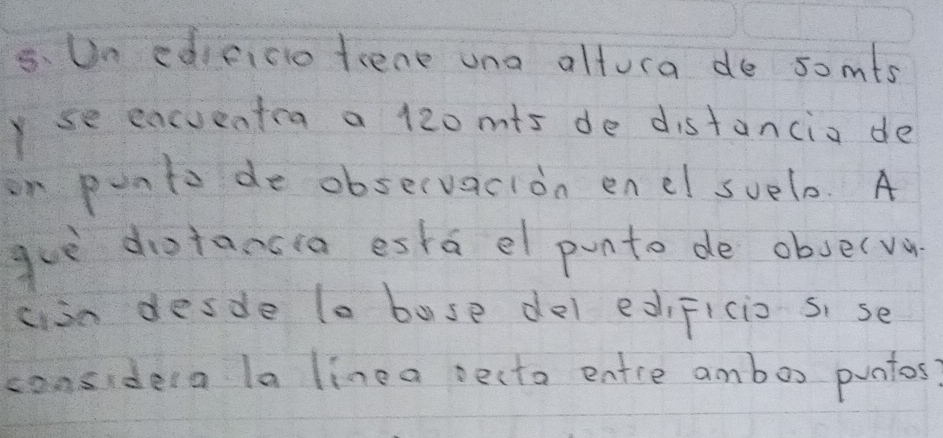 5. Un edificio tiene una altura de 50mts
y se encuentra a 120 mts de distancia de
un punto de observación en el suelo. A
què distancia está el punto de observa-
ción desde la base del edificio si se
considera la linea recta entre ambos puntos?